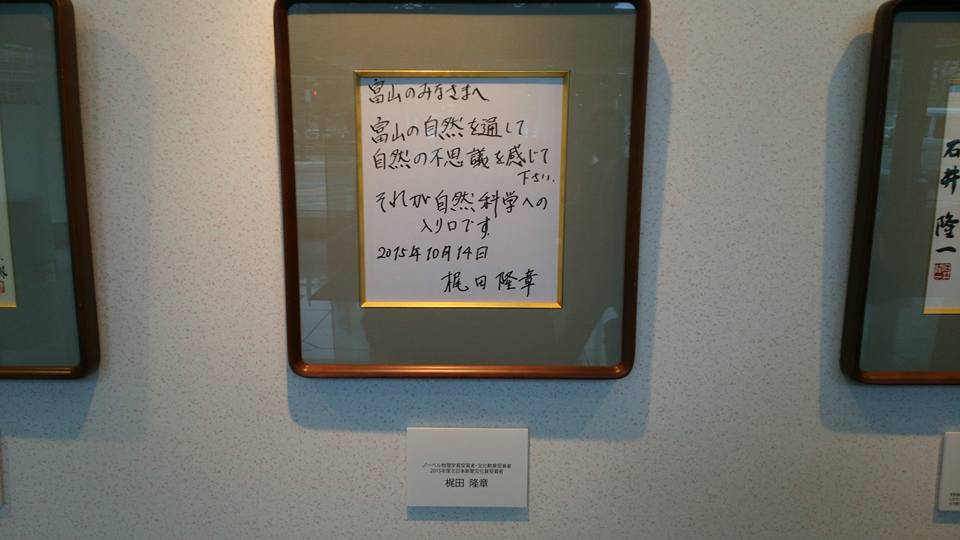 富山のみなさまへ
富山の自然を通して
自然の不思議を感じて
下さい.
それが自然科学への
入り口です.
2015年10月14日
梶田隆章
ノーベル物理学賞受賞者・文化勲章受章者
2015年度北日本新聞文化賞受賞者
梶田 隆章
石井 隆一